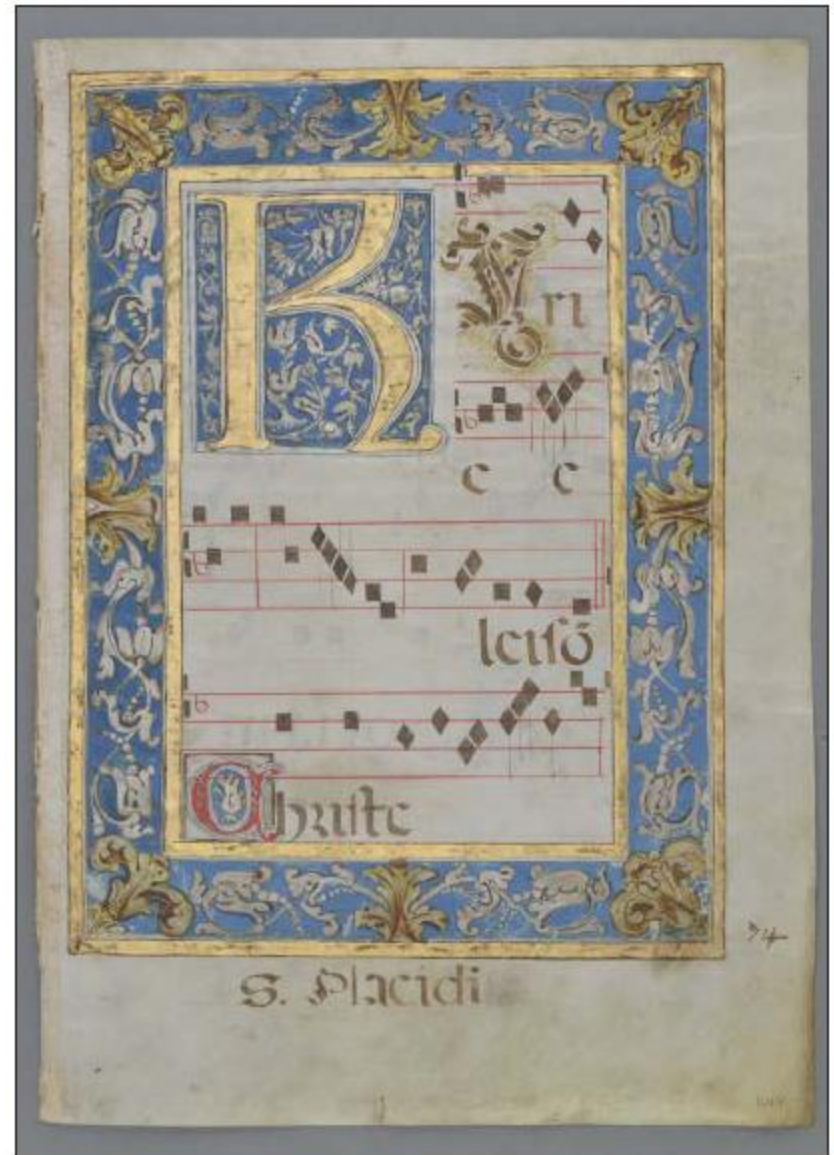 Kyri
e e
leisō
Christe
S. Placidi